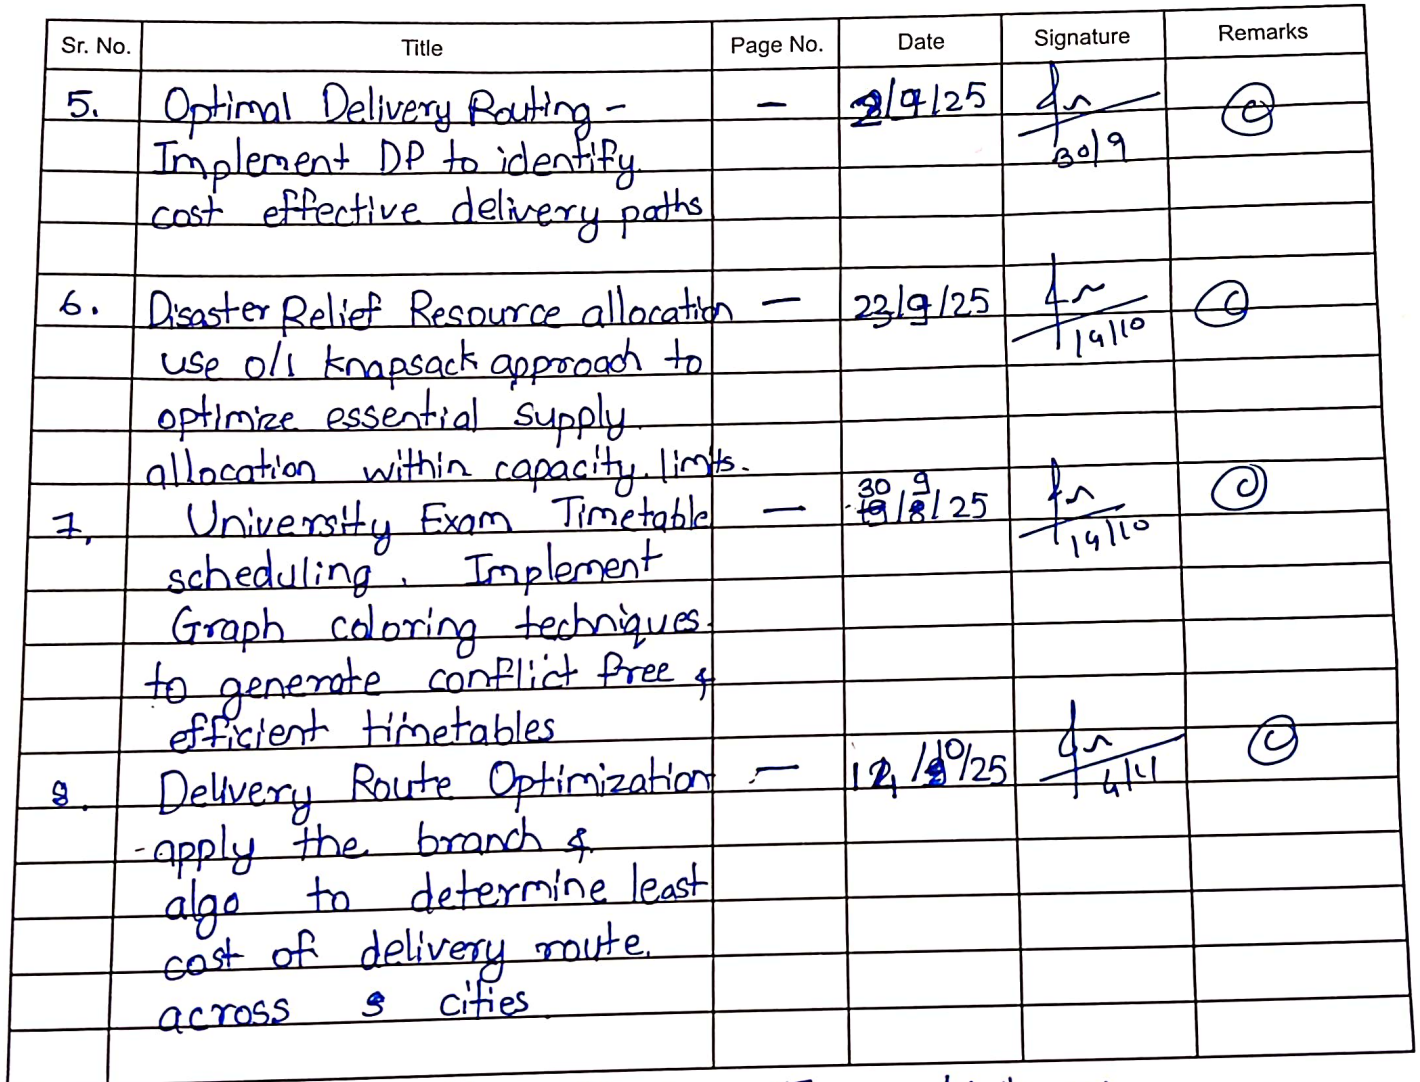 Sr. No. Title Page No. Date Signature Remarks
5. Optimal Delivery Routing - - 2/9/25
Implement DP to identify 30/9
cost effective delivery paths
6. Disaster Relief Resource allocation - 23/9/25
use 0/1 knapsack approach to 14/10
optimize essential supply
allocation within capacity limits.
30 9
7. University Exam Timetable - /25
scheduling. Implement 14/10
Graph coloring techniques
to generate conflict free &
efficient timetables
8. Delivery Route Optimization - 14/10/25
- apply the branch & 4/11
algo to determine least
cost of delivery route.
across cities